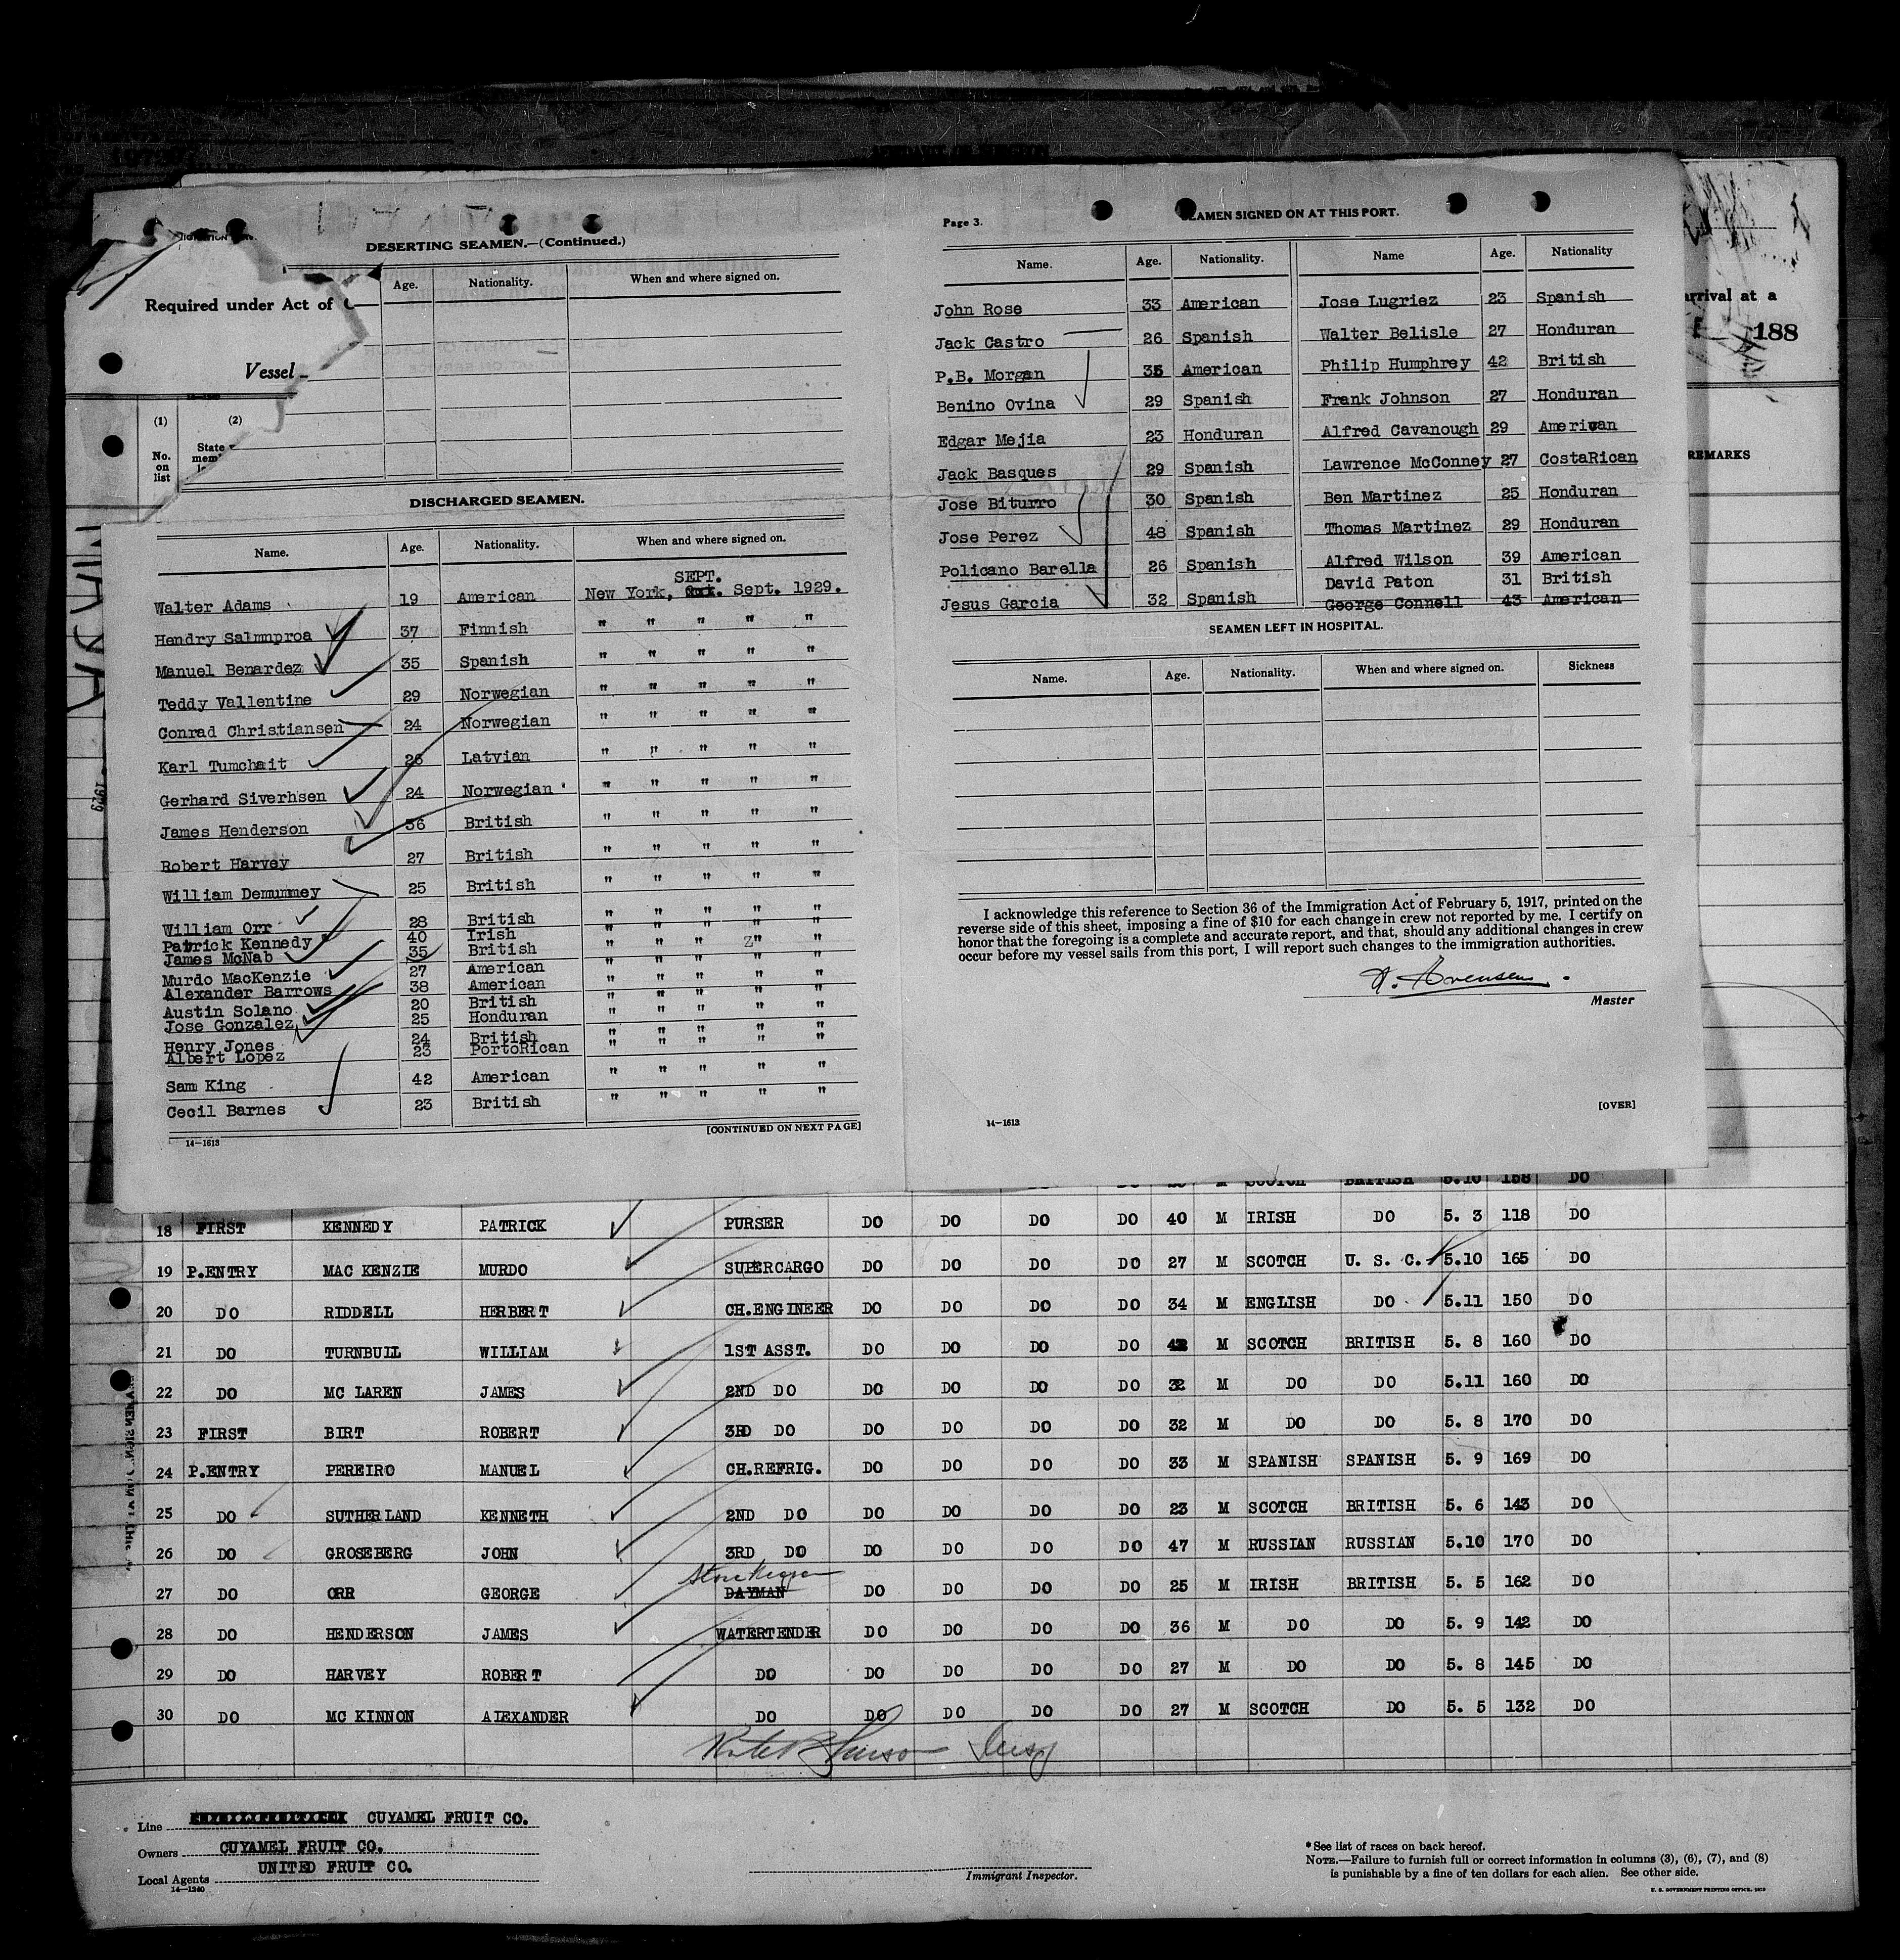 DESERTING SEAMEN.—(Continued.)
Age. Nationality. When and where signed on.
Required under Act of
Vessel
(1) (2)
No. on list
State
DISCHARGED SEAMEN.
Name. Age. Nationality. When and where signed on.
SEPT.
Walter Adams 19 American New York, Sept. 1929.
Hendry Salmnproa 37 Finnish " " " " "
Manuel Benardez 35 Spanish " " " " "
Teddy Vallentine 29 Norwegian " " " " "
Conrad Christiansen 24 Norwegian " " " " "
Karl Tumchait 26 Latvian " " " " "
Gerhard Siverhsen 24 Norwegian " " " " "
James Henderson 36 British " " " " "
Robert Harvey 27 British " " " " "
William Demummey 25 British " " " " "
William Orr 28 British " " " " "
Patrick Kennedy 40 Irish " " " " "
James McNab 35 British " " " Z" "
Murdo MacKenzie 27 American " " " " "
Alexander Barrows 38 American " " " " "
Austin Solano 20 British " " " " "
Jose Gonzalez 25 Honduran " " " " "
Henry Jones 24 British " " " " "
Albert Lopez 23 PortoRican " " " " "
Sam King 42 American " " " " "
Cecil Barnes 23 British " " " " "
14—1613 [CONTINUED ON NEXT PAGE]
Page 3. SEAMEN SIGNED ON AT THIS PORT.
Name. Age. Nationality. Name Age. Nationality
John Rose 33 American Jose Lugriez 23 Spanish
Jack Castro 26 Spanish Walter Belisle 27 Honduran
P.B. Morgan 35 American Philip Humphrey 42 British
Benino Ovina 29 Spanish Frank Johnson 27 Honduran
Edgar Mejia 23 Honduran Alfred Cavanough 29 American
Jack Basques 29 Spanish Lawrence McConney 27 CostaRican
Jose Biturro 30 Spanish Ben Martinez 25 Honduran
Jose Perez 48 Spanish Thomas Martinez 29 Honduran
Policano Barella 26 Spanish Alfred Wilson 39 American
David Paton 31 British
Jesus Garcia 32 Spanish George Connell 43 American
SEAMEN LEFT IN HOSPITAL.
Name. Age. Nationality. When and where signed on. Sickness
I acknowledge this reference to Section 36 of the Immigration Act of February 5, 1917, printed on the
reverse side of this sheet, imposing a fine of $10 for each change in crew not reported by me. I certify on
honor that the foregoing is a complete and accurate report, and that, should any additional changes in crew
occur before my vessel sails from this port, I will report such changes to the immigration authorities.
Master
14—1613 [OVER]
arrival at a
188
REMARKS
SCOTCH BRITISH 5.10 158 DO
18 FIRST KENNEDY PATRICK PURSER DO DO DO DO 40 M IRISH DO 5. 3 118 DO
19 P.ENTRY MAC KENZIE MURDO SUPERCARGO DO DO DO DO 27 M SCOTCH U. S. C. 5.10 165 DO
20 DO RIDDELL HERBERT CH.ENGINEER DO DO DO DO 34 M ENGLISH DO 5.11 150 DO
21 DO TURNBULL WILLIAM 1ST ASST. DO DO DO DO 42 M SCOTCH BRITISH 5. 8 160 DO
22 DO MC LAREN JAMES 2ND DO DO DO DO DO 32 M DO DO 5.11 160 DO
23 FIRST BIRT ROBERT 3RD DO DO DO DO DO 32 M DO DO 5. 8 170 DO
24 P.ENTRY PEREIRO MANUEL CH.REFRIG. DO DO DO DO 33 M SPANISH SPANISH 5. 9 169 DO
25 DO SUTHERLAND KENNETH 2ND DO DO DO DO DO 23 M SCOTCH BRITISH 5. 6 143 DO
26 DO GROSEBERG JOHN 3RD DO DO DO DO DO 47 M RUSSIAN RUSSIAN 5.10 170 DO
Storekeeper
27 DO ORR GEORGE DAYMAN DO DO DO DO 25 M IRISH BRITISH 5. 5 162 DO
28 DO HENDERSON JAMES WATERTENDER DO DO DO DO 36 M DO DO 5. 9 142 DO
29 DO HARVEY ROBERT DO DO DO DO DO 27 M DO DO 5. 8 145 DO
30 DO MC KINNON ALEXANDER DO DO DO DO DO 27 M SCOTCH DO 5. 5 132 DO
Line CUYAMEL FRUIT CO.
Owners CUYAMEL FRUIT CO.
Local Agents UNITED FRUIT CO.
14—1240
Immigrant Inspector.
*See list of races on back hereof.
NOTE.—Failure to furnish full or correct information in columns (3), (6), (7), and (8)
is punishable by a fine of ten dollars for each alien. See other side.
U. S. GOVERNMENT PRINTING OFFICE